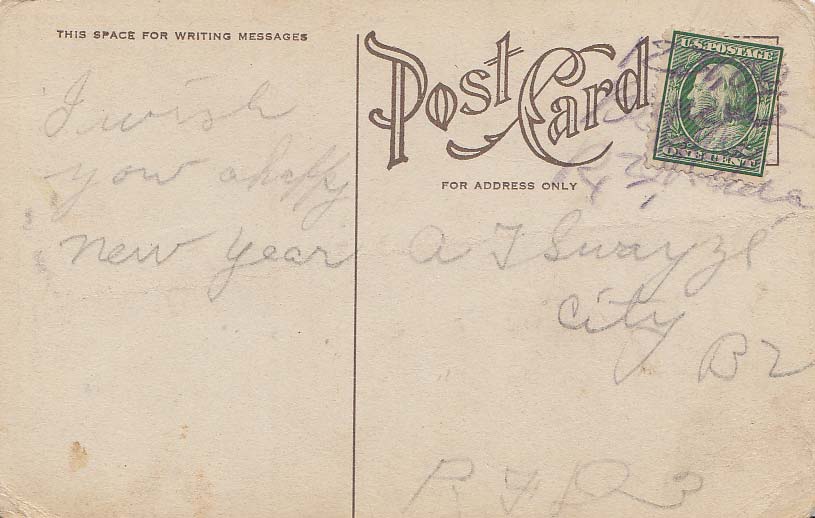 THIS SPACE FOR WRITING MESSAGES
I wish
you a happy
new year
Post Card
FOR ADDRESS ONLY
U.S. POSTAGE
ONE CENT
A T Swayze
City
R F D 3